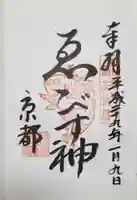 奉拝 平成二十九年一月九日
ゑびす神
京都